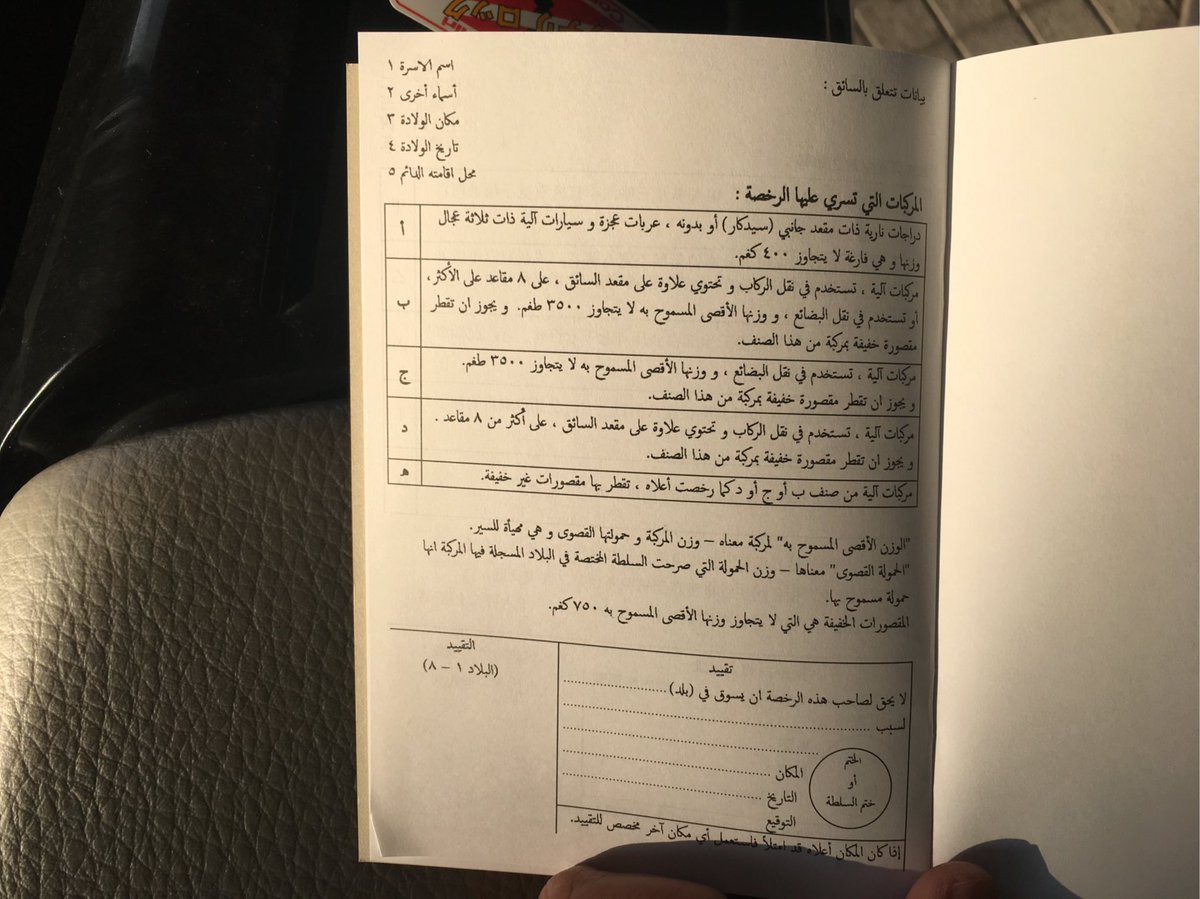 بيانات تتعلق بالسائق :
اسم الاسرة ١
أسماء أخرى ٢
مكان الولادة ٣
تاريخ الولادة ٤
محل اقامته الدائم ٥
المركبات التي تسري عليها الرخصة :
دراجات نارية ذات مقعد جانبي (سيدكار) أو بدونه ، عربات عجزة و سيارات آلية ذات ثلاثة عجال
وزنها و هي فارغة لا يتجاوز ٤٠٠ كغم.
أ
مركبات آلية ، تستخدم في نقل الركاب و تحتوي علاوة على مقعد السائق ، على ٨ مقاعد على الأكثر ،
أو تستخدم في نقل البضائع ، و وزنها الأقصى المسموح به لا يتجاوز ٣٥٠٠ طغم. و يجوز ان تقطر
مقصورة خفيفة بمركبة من هذا الصنف.
ب
مركبات آلية ، تستخدم في نقل البضائع ، و وزنها الأقصى المسموح به لا يتجاوز ٣٥٠٠ طغم.
و يجوز ان تقطر مقصورة خفيفة بمركبة من هذا الصنف.
ج
مركبات آلية ، تستخدم في نقل الركاب و تحتوي علاوة على مقعد السائق ، على أكثر من ٨ مقاعد .
و يجوز ان تقطر مقصورة خفيفة بمركبة من هذا الصنف.
د
مركبات آلية من صنف ب أو ج أو د كما رخصت أعلاه ، تقطر بها مقصورات غير خفيفة.
ه
"الوزن الأقصى المسموح به" لمركبة معناه – وزن المركبة و حمولتها القصوى و هي مهيأة للسير.
"الحمولة القصوى" معناها – وزن الحمولة التي صرحت السلطة المختصة في البلاد المسجلة فيها المركبة انها
حمولة مسموح بها.
المقصورات الخفيفة هي التي لا يتجاوز وزنها الأقصى المسموح به ٧٥٠ كغم.
تقييد
لا يحق لصاحب هذه الرخصة ان يسوق في (بلد)
لسبب
المكان
التاريخ
التوقيع
الختم
أو
ختم السلطة
إذا كان المكان أعلاه قد امتلأ فاستعمل أي مكان آخر مخصص للتقييد.
التقييد
(البلاد ١ – ٨)